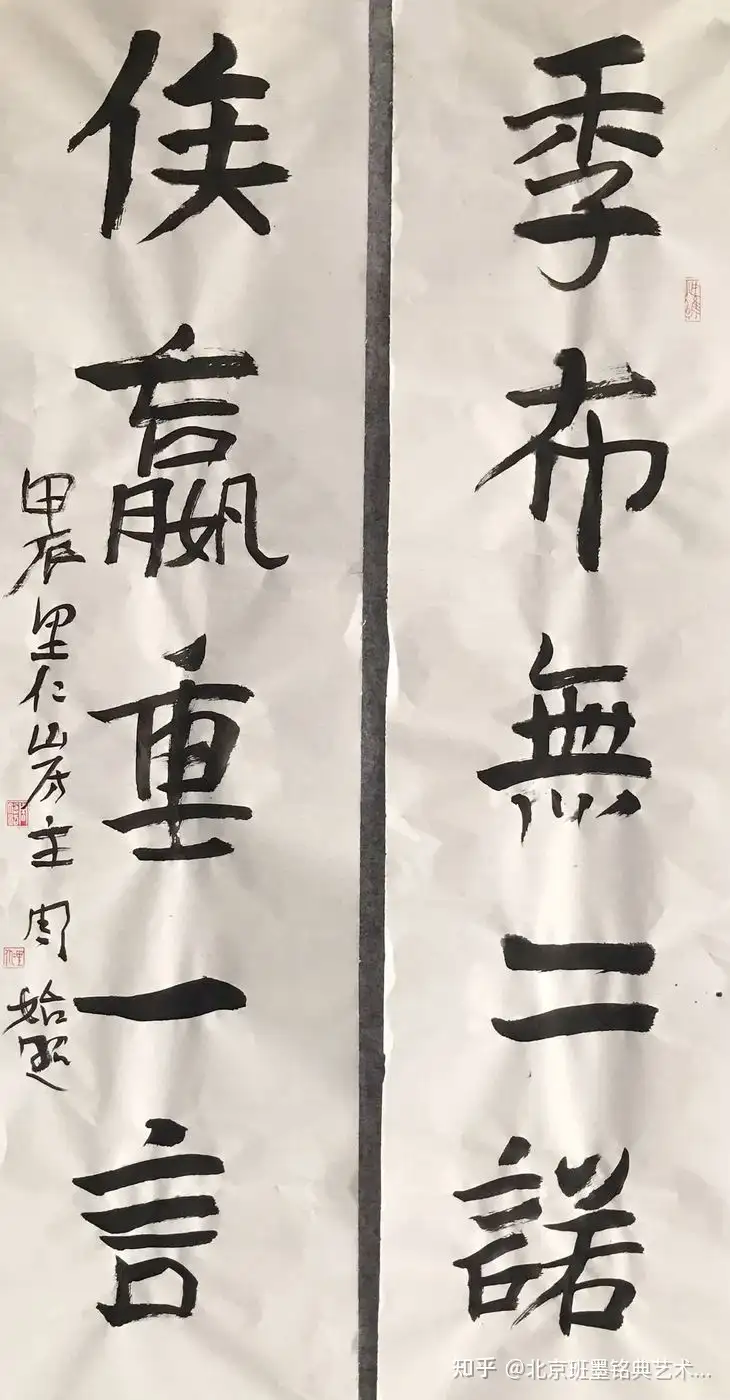 季布無二諾
侯嬴重一言
甲辰里仁山房主周
知乎 @北京班墨铭典艺术...